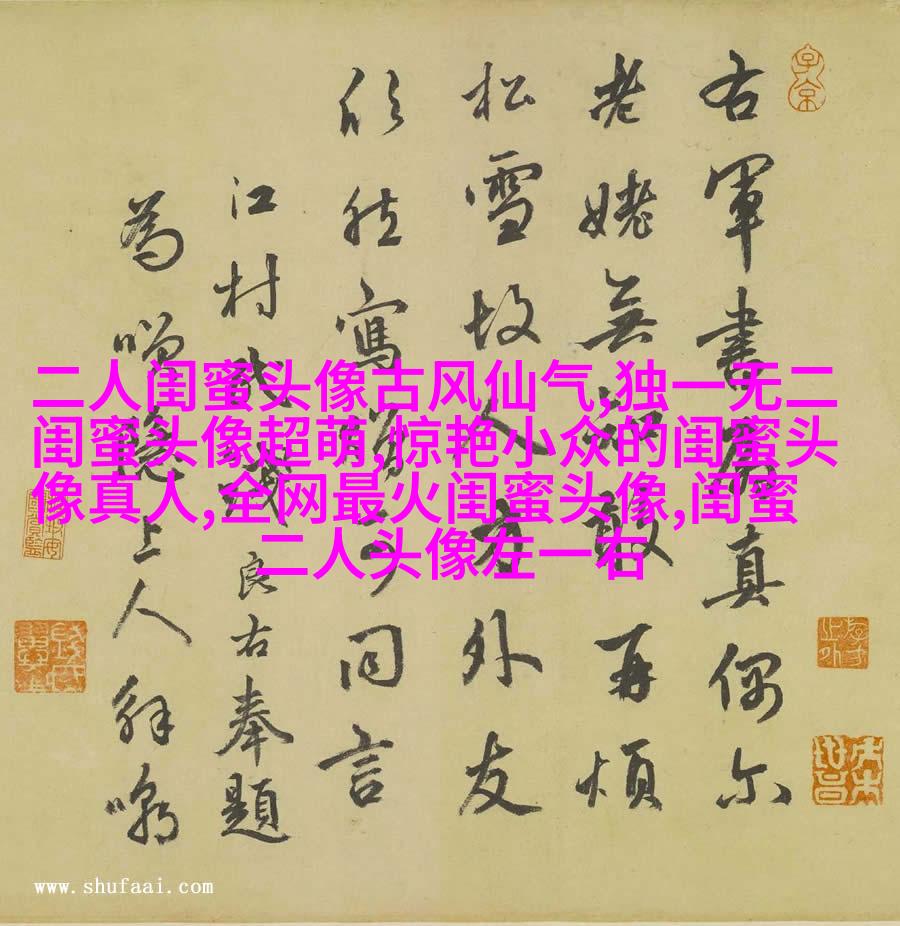 二人闺蜜头像古风仙气,独一无二
闺蜜头像超萌,惊艳小众的闺蜜头
像真人,全网最火闺蜜头像,闺蜜
二人头像左一右
右軍書扇真偶尔
老姥無知敢再煩
松雪故人方外友
欣然寫贈同言
江村良右奉題
為上人解嘲
www.shufaai.com